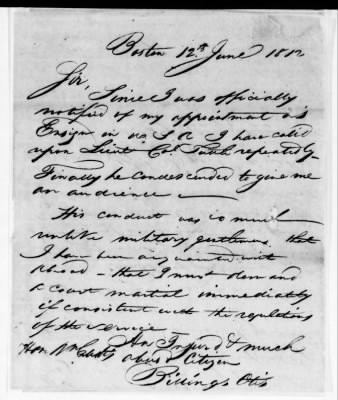 Boston 12th June 1812
Sir,
Since I was officially
notified of my appointment as
Ensign in U. S. A I have called
upon Lieut Col. repeatedly—
Finally he condescended to give me
an audience —
His conduct was so much
unlike military gentlemen that
I have been acquainted with
abroad — that I must demand
a court martial immediately
if consistent with the regulations
of the service
An Injur'd & much
Hon. Wm Eustis abus'd Citizen
Billings Otis